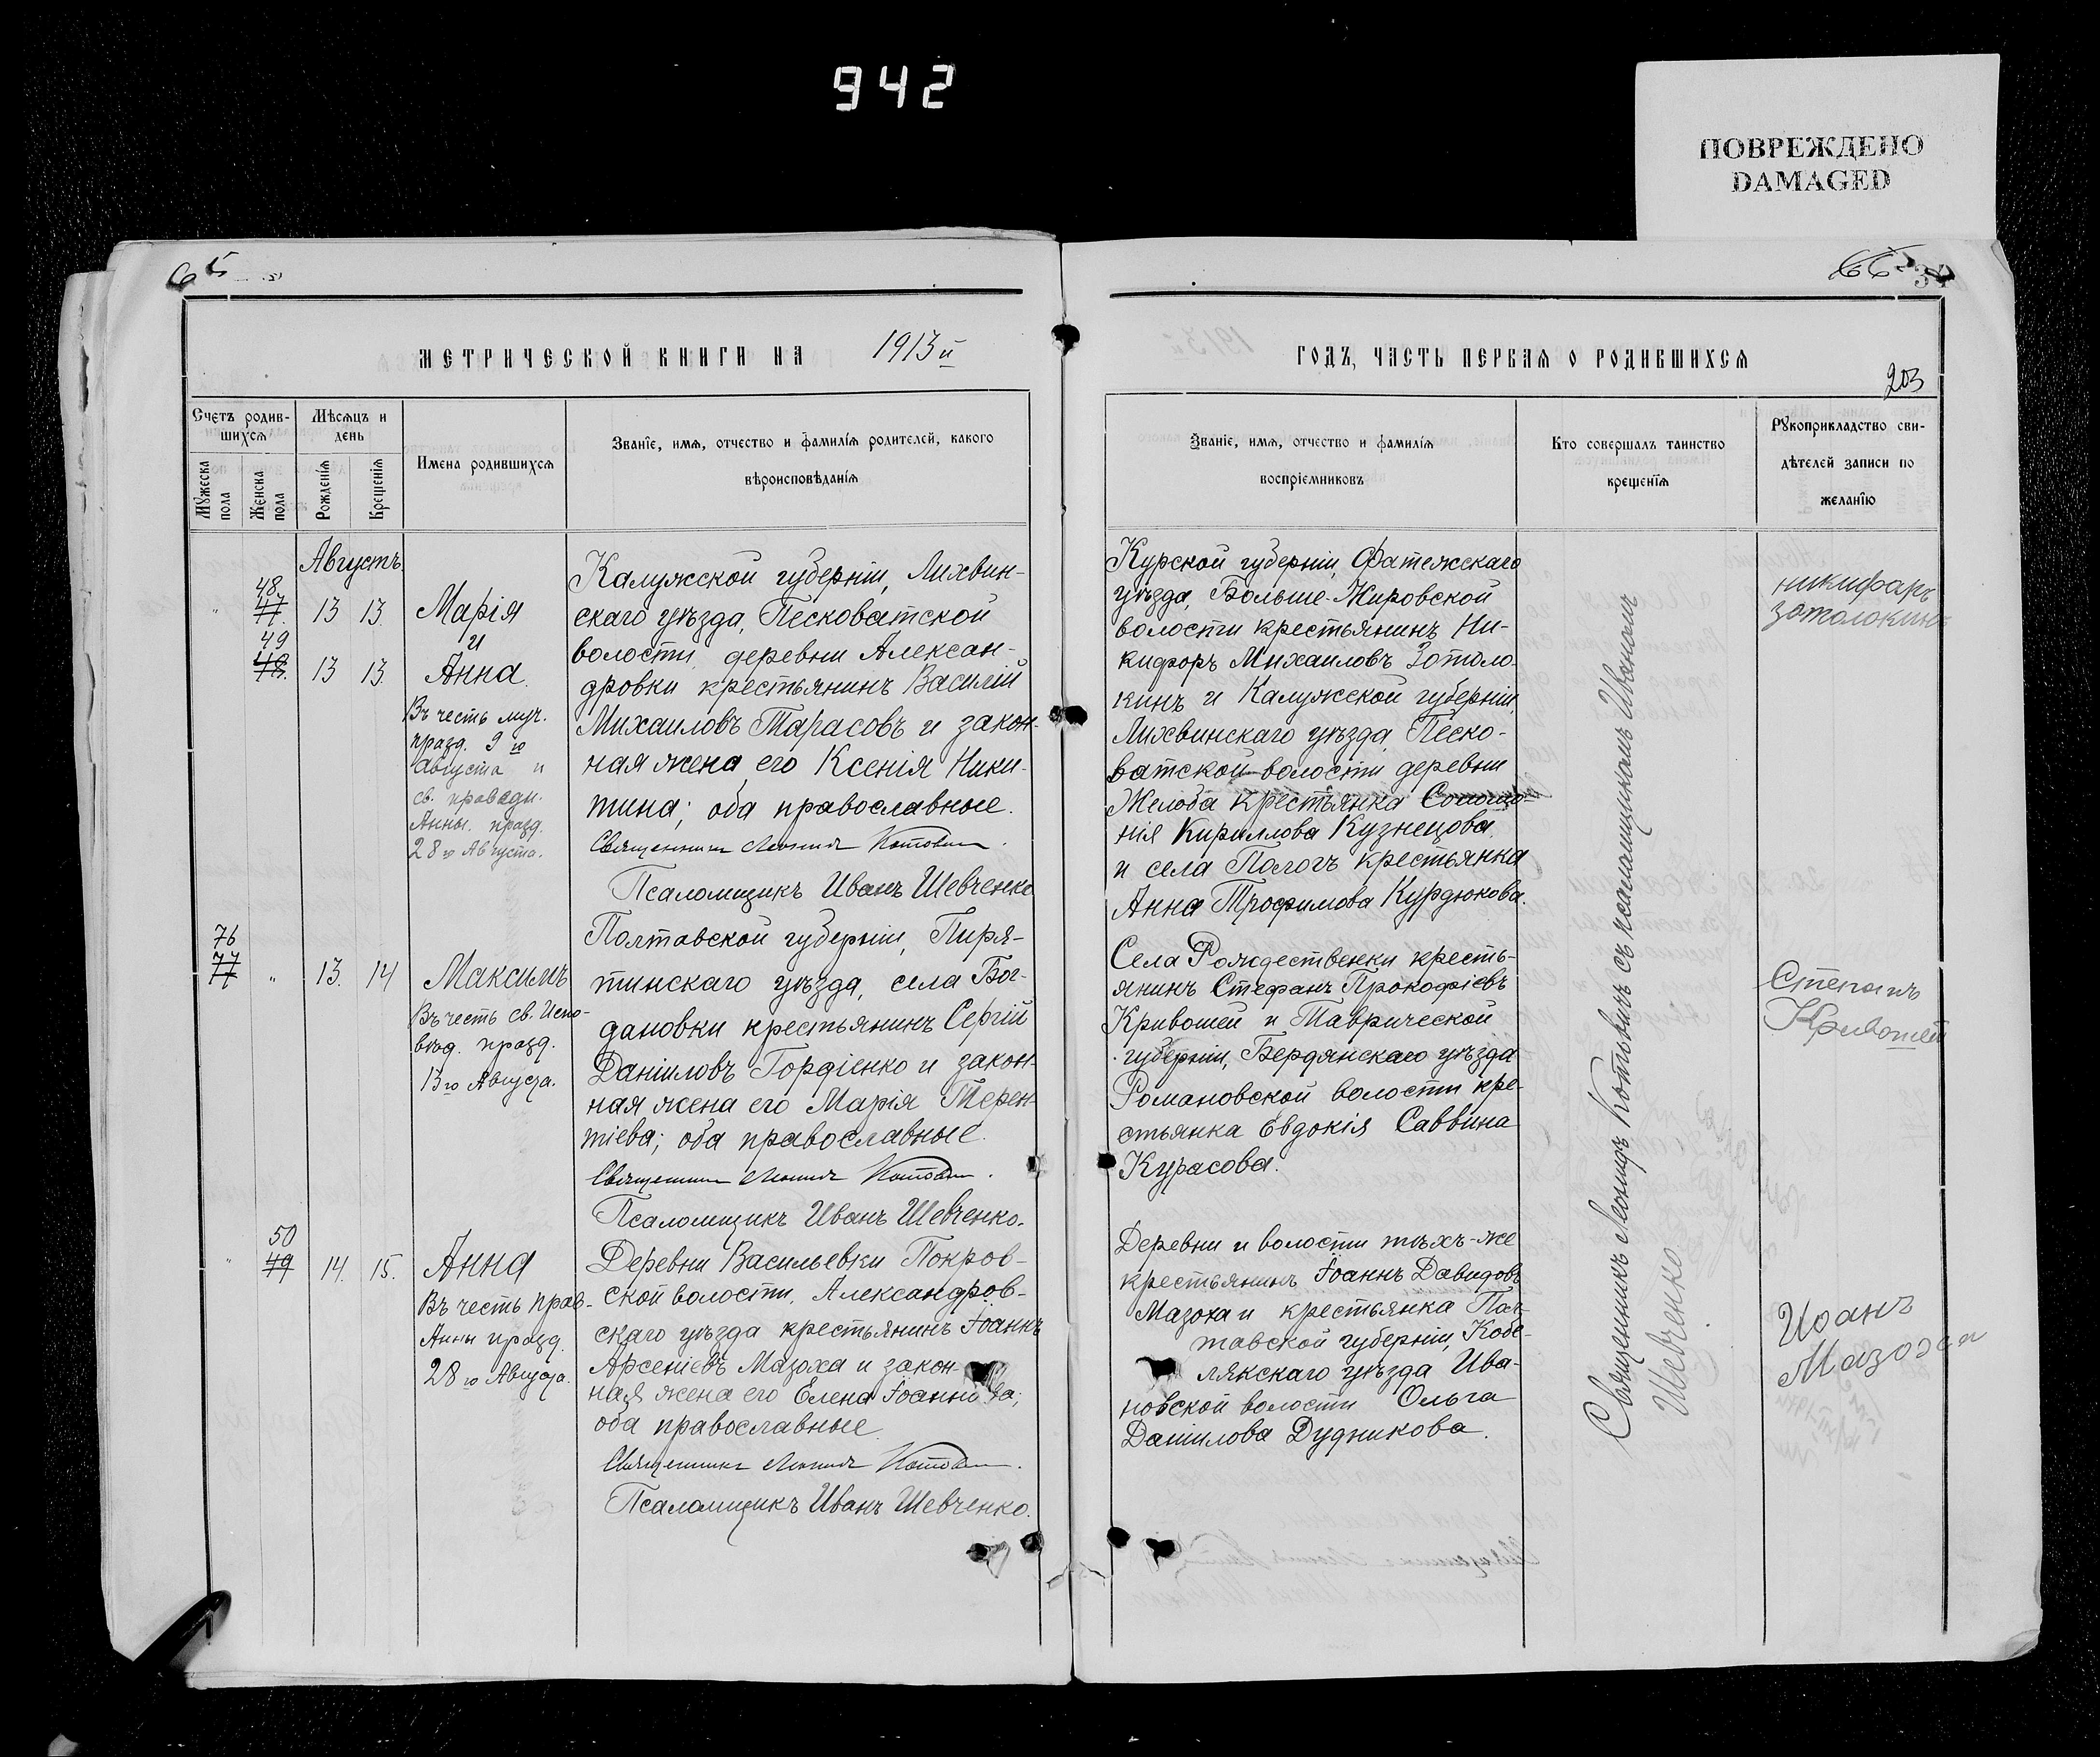 942
ПОВРЕЖДЕНО
DAMAGED
65
66
34
МЕТРИЧЕСКОЙ КНИГИ НА 1913й
ГОДЪ, ЧАСТЬ ПЕРВАЯ О РОДИВШИХСЯ
203
Счетъ родив-
шихся
Мужеска
пола
Женска
пола
Мѣсяцъ и
день
Рожденія
Крещенія
Имена родившихся
Званіе, имя, отчество и фамилія родителей, какого
вѣроисповѣданія
Званіе, имя, отчество и фамилія
воспріемниковъ
Кто совершалъ таинство
крещенія
Рукоприкладство сви-
дѣтелей записи по
желанію
Августъ
48
47. 13 13. Марія
и
49
48. 13 13. Анна.
Въ честь муч.
празд. 9го
Августа и
св. праведн.
Анны. празд.
28го Августа.
Калужской губерніи, Лихвин-
скаго уѣзда, Песковатской
волости, деревни Алексан-
дровки крестьянинъ Василій
Михаиловъ Тарасовъ и закон-
ная жена его Ксенія Ники-
тина; оба православные.
Священникъ Леонидъ Котовичъ.
Псаломщикъ Иванъ Шевченко
Курской губерніи, Фатежскаго
уѣзда, Больше-Жировской
волости крестьянинъ Ни-
кифоръ Михаиловъ Зотоло-
кинъ и Калужской губерніи,
Лихвинскаго уѣзда, Песко-
ватской волости деревни
Желоба крестьянка Соломо-
нія Кириллова Кузнецова,
и села Пологъ крестьянка
Анна Трофимова Курдюкова.
никифаръ
зотолокинъ
76
77 " 13. 14 Максимъ
Въ честь св. Испо-
вѣд. празд.
13го Августа.
Полтавской губерніи, Пиря-
тинскаго уѣзда, села Бог-
дановки крестьянинъ Сергій
Даніиловъ Гордіенко и закон-
ная жена его Марія Терен-
тіева; оба православные.
Священникъ Леонидъ Котовичъ.
Псаломщикъ Иванъ Шевченко.
Села Рождественки кресть-
янинъ Стефанъ Прокофіевъ
Кривошей и Таврической
губерніи, Бердянскаго уѣзда
Романовской волости кре-
стьянка Евдокія Саввина
Курасова.
Степанъ
Кривошей
50
" 49 14. 15. Анна
Въ честь прав.
Анны празд.
28го Августа.
Деревни Васильевки Покров-
ской волости, Александров-
скаго уѣзда крестьянинъ Іоаннъ
Арсеніевъ Мазоха и закон-
ная жена его Елена Іоаннова;
оба православные.
Священникъ Леонидъ Котовичъ.
Псаломщикъ Иванъ Шевченко.
Деревни и волости тѣхъ-же
крестьянинъ Іоаннъ Давидовъ
Мазоха и крестьянка Пол-
тавской губерніи, Кобе-
лякскаго уѣзда Ива-
новской волости Ольга
Даніилова Дудникова.
Иоанъ
Священникъ Леонидъ Котовичъ съ псаломщикомъ Иваномъ
Шевченко